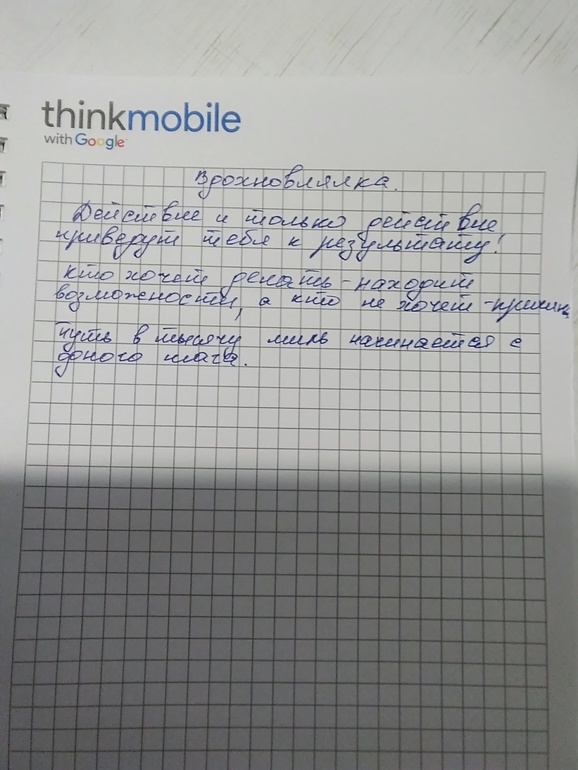 thinkmobile
with Google
Вдохновлялка.
Действие и только действие
приведут тебя к результату!
Кто хочет делать - находит
возможности, а кто не хочет - причины
Путь в тысячу миль начинается с
одного шага.